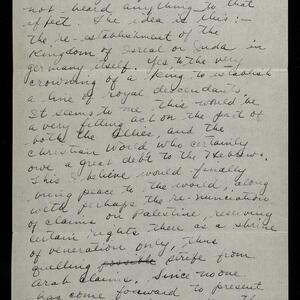 not heard anything to that
effect. The idea is this:—
the re-establishment of the
Kingdom of Isreal or Juda in
germany itself. Yes to the very
crowning of a King to establish
a line of royal descendants.
It seems to me this would be
a very fitting act on the part of
both the Allies, and the
Christian World who certainly
owe a great debt to the Hebrews.
This I believe would finally
bring peace to the world, along
with perhaps the re-nunciation
of claims on Palestine, reserving
certain rights there as a shrine
of veneration only, thus
quelling possible strife from
Arab claims. Since no one
has come forward to present